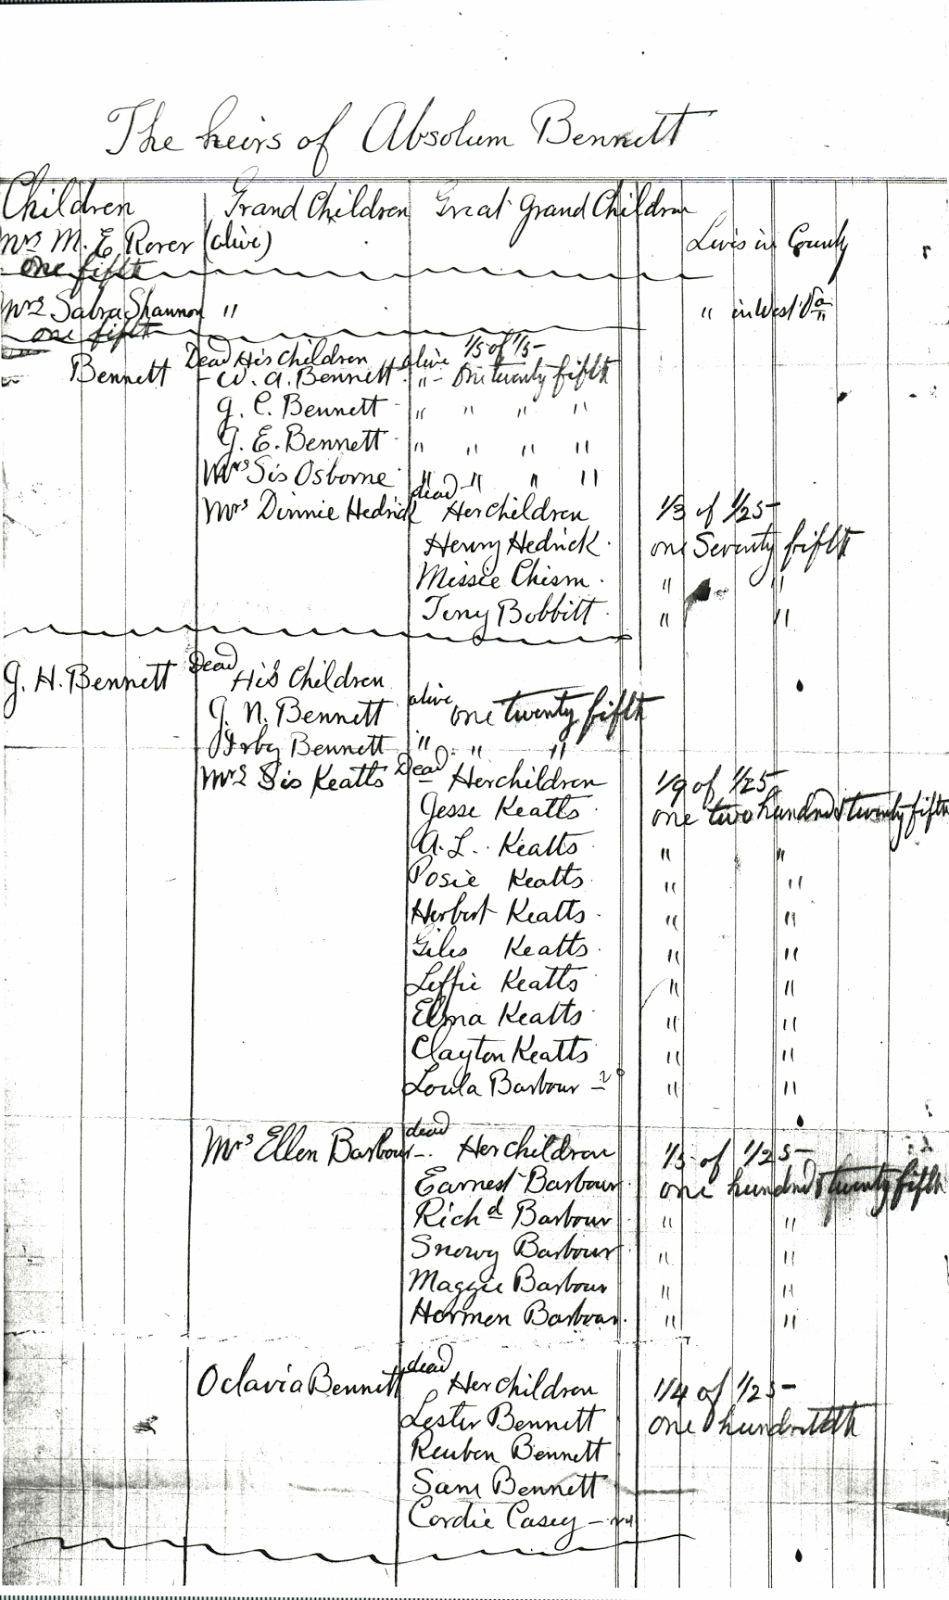 The heirs of Absolum Bennett
Children Grand Children Great Grand Children
Mrs M. E. Rorer (alive) Lives in County
one fifth
Mrs Sabra Shannon " " in West Va
one fifth
Bennett Dead His Children alive 1/5 of 1/5
- W. A. Bennett " - One twenty fifth
J. C. Bennett " " " "
J. E. Bennett " " " "
Mrs Sis Osborne " " " "
Mrs Dinnie Hedrick dead Her children 1/3 of 1/25
Henry Hedrick one Seventy fifth
Missie Chism " "
Tony Bobbitt " "
J. H. Bennett Dead His Children
J. N. Bennett alive one twenty fifth
Irby Bennett " " "
Mrs Sis Keatts Dead Her children 1/9 of 1/25
Jesse Keatts one two hundred & twenty fifth
A. L. Keatts " "
Posie Keatts " "
Herbert Keatts " "
Giles Keatts " "
Leffie Keatts " "
Elma Keatts " "
Clayton Keatts " "
Loula Barbour " "
Mrs Ellen Barbour dead Her children 1/5 of 1/25
Earnest Barbour one hundred & twenty fifth
Richd Barbour " "
Snowy Barbour " "
Maggie Barbour " "
Hermen Barbour " "
Octavia Bennett dead Her children 1/4 of 1/25
Lester Bennett one hundredth
Reuben Bennett
Sam Bennett
Cordie Casey